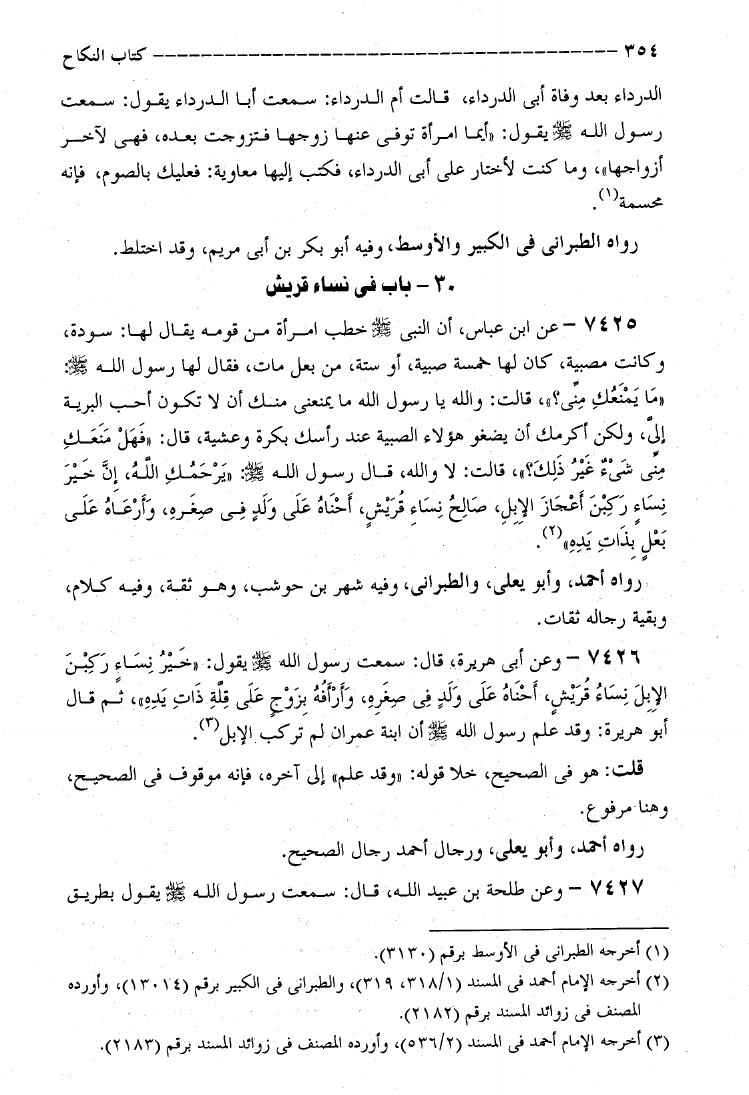 ٣٥٤ ــــــــــــــــــــــــــــــــــــــــــــــــــــ كتاب النكاح
الدرداء بعد وفاة أبى الدرداء، قالت أم الدرداء: سمعت أبا الدرداء يقول: سمعت
رسول الله ﷺ يقول: «أيما امرأة توفى عنها زوجها فتزوجت بعده، فهى لآخر
أزواجها»، وما كنت لأختار على أبى الدرداء، فكتب إليها معاوية: فعليك بالصوم، فإنه
محسمة(١).
رواه الطبرانى فى الكبير والأوسط، وفيه أبو بكر بن أبى مريم، وقد اختلط.
٣٠ – باب فى نساء قريش
٧٤٢٥ – عن ابن عباس، أن النبى ﷺ خطب امرأة من قومه يقال لها: سودة،
وكانت مصبية، كان لها خمسة صبية، أو ستة، من بعل مات، فقال لها رسول الله ﷺ:
«مَا يَمْنَعُكِ مِنِّى؟»، قالت: والله يا رسول الله ما يمنعنى منك أن لا تكون أحب البرية
إلىَّ، ولكن أكرمك أن يضغو هؤلاء الصبية عند رأسك بكرة وعشية، قال: «فَهَلْ مَنَعَكِ
مِنِّى شَىْءٌ غَيْرُ ذَلِكَ؟»، قالت: لا والله، قال رسول الله ﷺ: «يَرْحَمُكِ اللَّهُ، إِنَّ خَيْرَ
نِسَاءٍ رَكِبْنَ أَعْجَازَ الإِبِلِ، صَالِحُ نِسَاءِ قُرَيْشٍ، أَحْنَاهُ عَلَى وَلَدٍ فِى صِغَرِهِ، وَأَرْعَاهُ عَلَى
بَعْلٍ بِذَاتِ يَدِهِ»(٢).
رواه أحمد، وأبو يعلى، والطبرانى، وفيه شهر بن حوشب، وهو ثقة، وفيه كلام،
وبقية رجاله ثقات.
٧٤٢٦ – وعن أبى هريرة، قال: سمعت رسول الله ﷺ يقول: «خَيْرُ نِسَاءٍ رَكِبْنَ
الإِبِلَ نِسَاءُ قُرَيْشٍ، أَحْنَاهُ عَلَى وَلَدٍ فِى صِغَرِهِ، وَأَرْأَفُهُ بِزَوْجٍ عَلَى قِلَّةِ ذَاتِ يَدِهِ»، ثم قال
أبو هريرة: وقد علم رسول الله ﷺ أن ابنة عمران لم تركب الإبل(٣).
قلت: هو فى الصحيح، خلا قوله: «وقد علم» إلى آخره، فإنه موقوف فى الصحيح،
وهنا مرفوع.
رواه أحمد، وأبو يعلى، ورجال أحمد رجال الصحيح.
٧٤٢٧ – وعن طلحة بن عبيد الله، قال: سمعت رسول الله ﷺ يقول بطريق
(١) أخرجه الطبرانى فى الأوسط برقم (٣١٣٠).
(٢) أخرجه الإمام أحمد فى المسند (٣١٨/١، ٣١٩)، والطبرانى فى الكبير برقم (١٣٠١٤)، وأورده
المصنف فى زوائد المسند برقم (٢١٨٢).
(٣) أخرجه الإمام أحمد فى المسند (٥٣٦/٢)، وأورده المصنف فى زوائد المسند برقم (٢١٨٣).